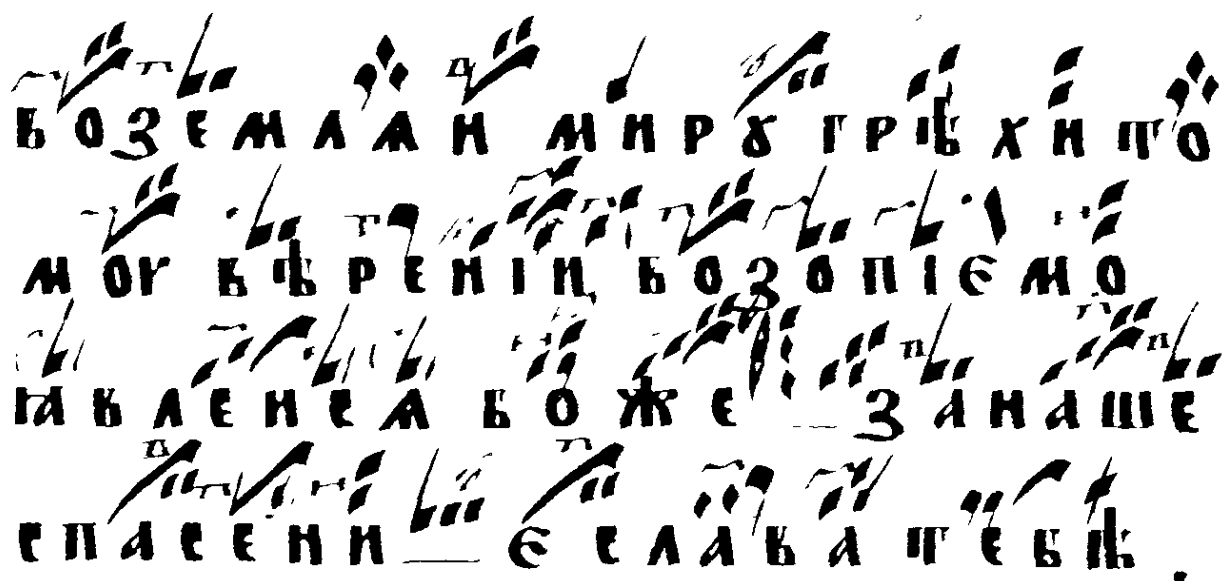 воземлѧи миру грѣхи то
моу вѣренiи возопiємо
ꙗвлеисѧ боже за наше
спасени є слава тебѣ.